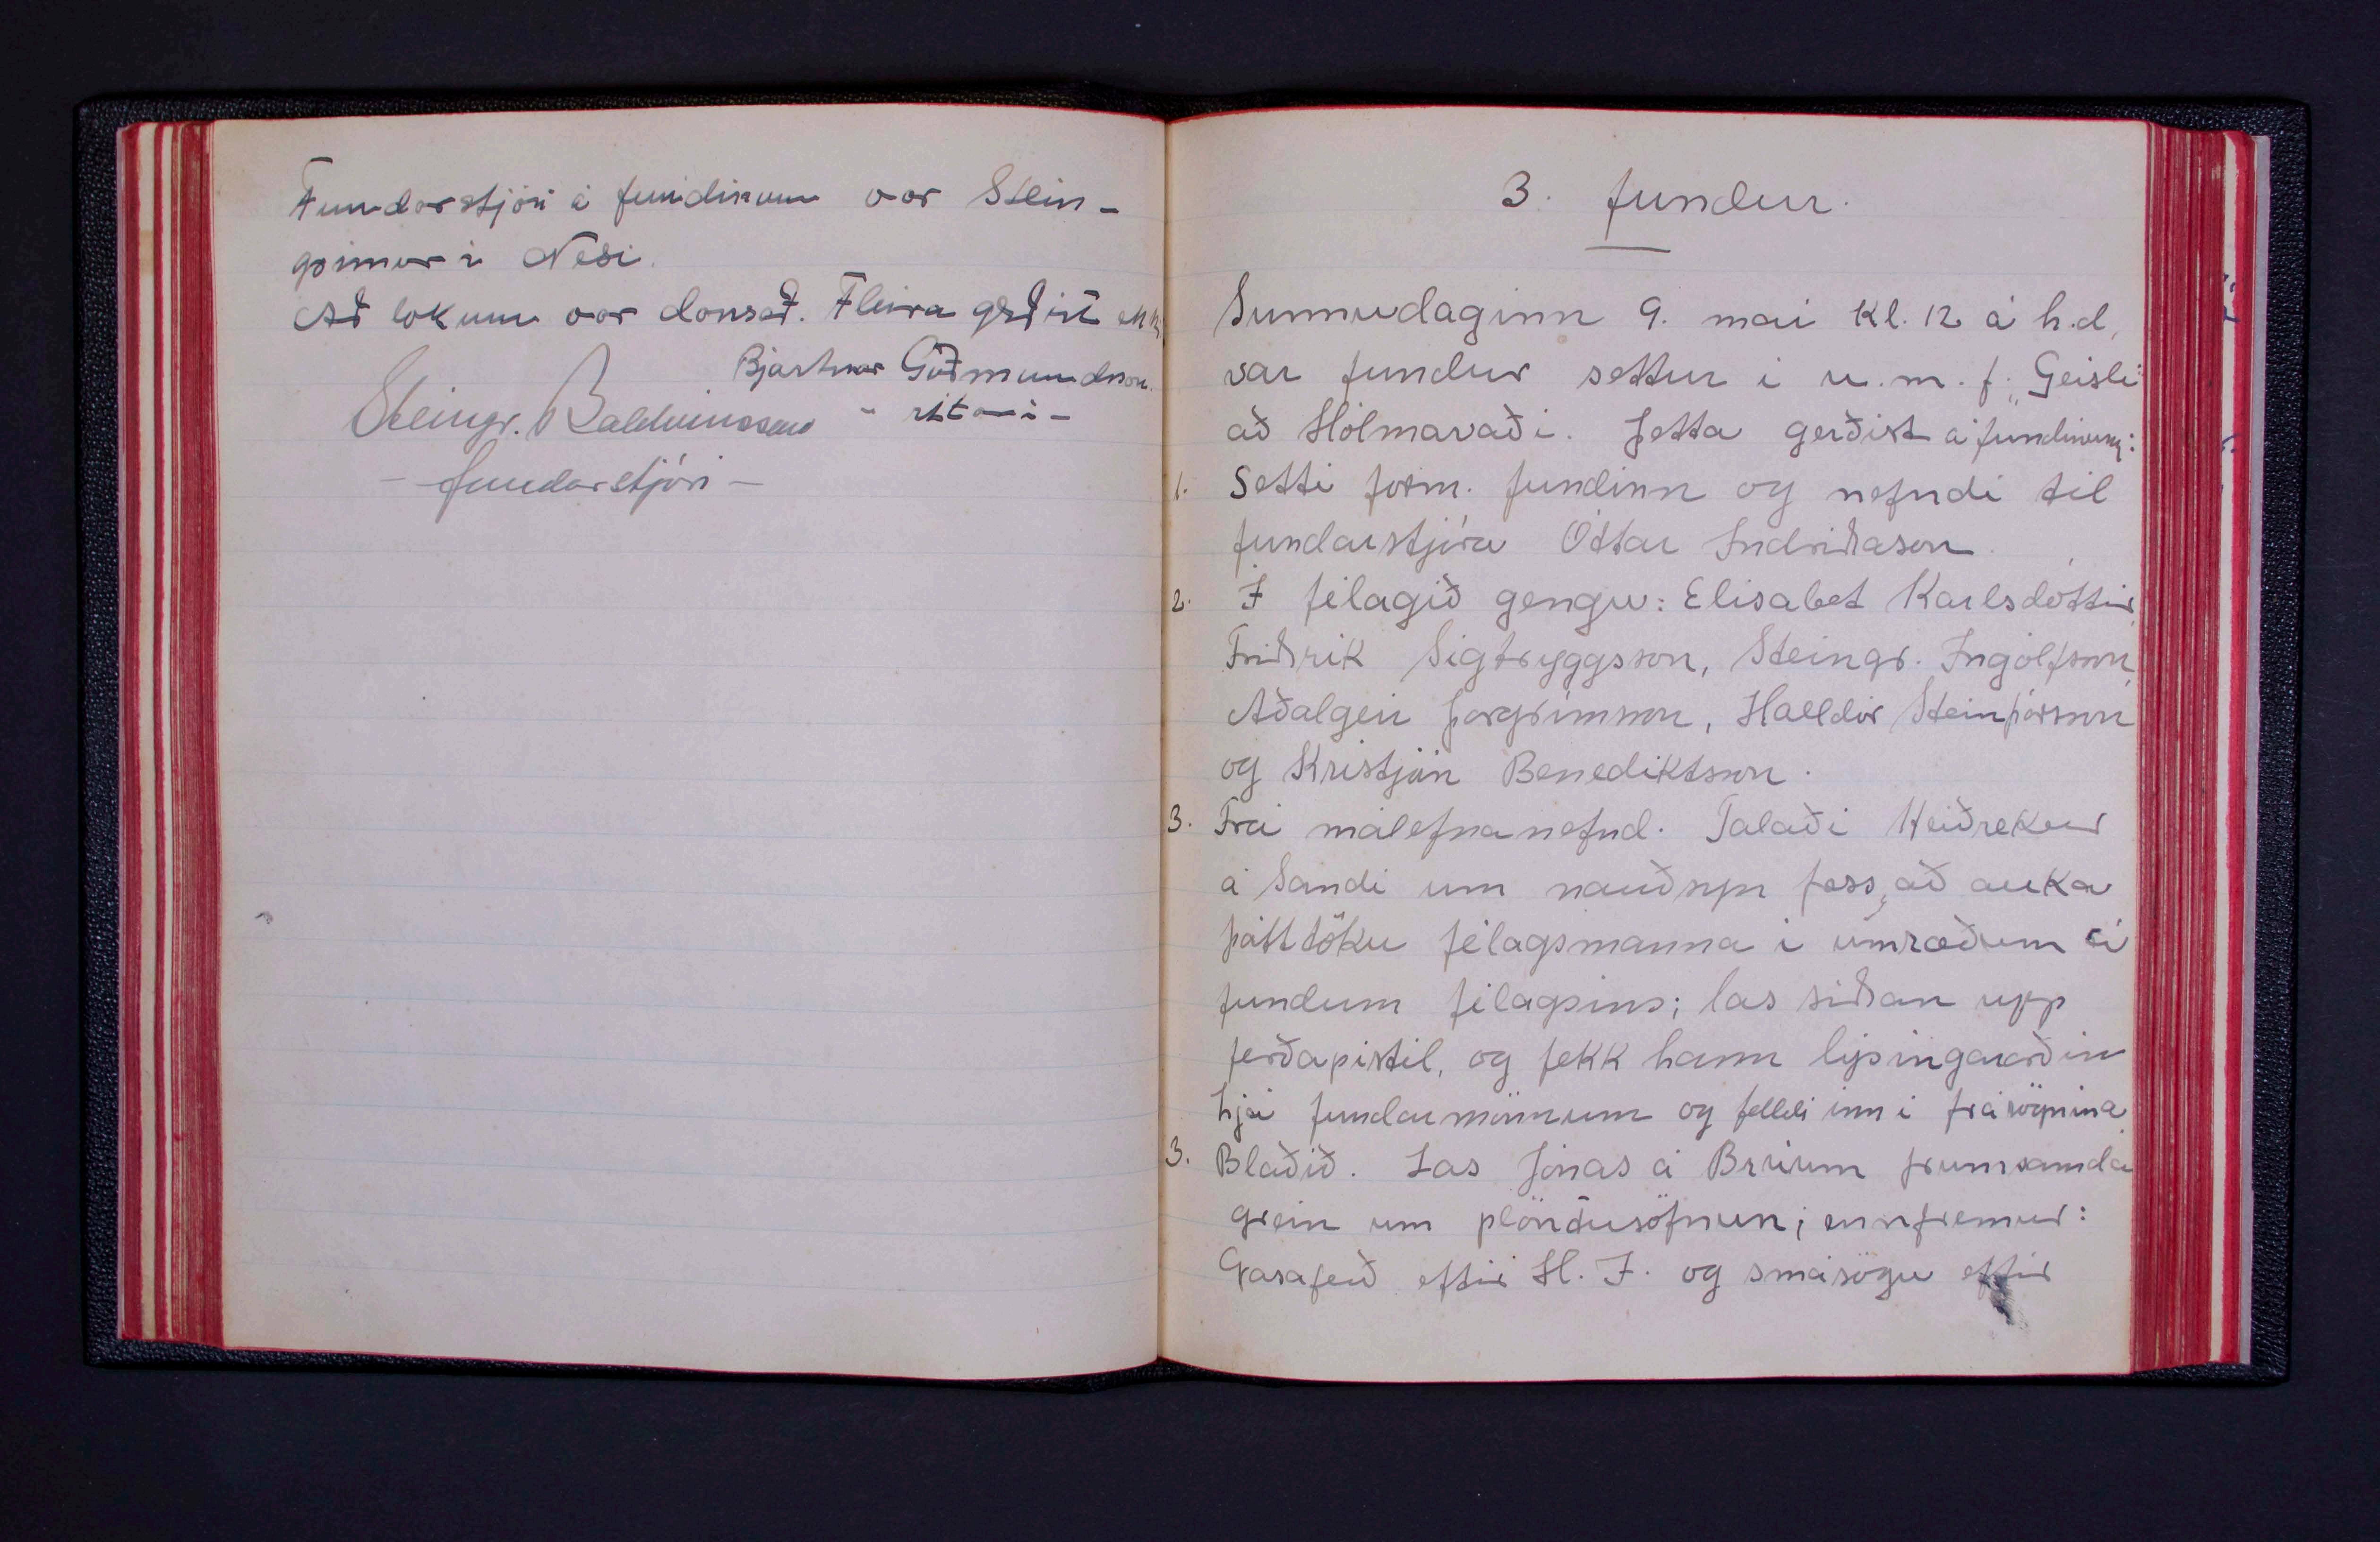 Fundarstjóri á fundinum var Stein-
grímur í Nesi.
Að lokum var dansað. Fleira gerðist ekki
Bjartmar Guðmundsson.
- ritari -
Steingr. Baldvinsson
- fundarstjóri -
3. fundur.
Sunnudaginn 9. maí kl. 12 á h.d.
var fundur settur í u.m.f. „Geisli"
að Hólmavaði. Þetta gerðist á fundinum:
1. Setti form. fundinn og nefndi til
fundarstjóra Óttar Indriðason.
2. Í félagið gengu: Elísabet Karlsdóttir,
Friðrik Sigtryggsson, Steingr. Ingólfsson,
Aðalgeir Þorgrímsson, Halldór Steinþórsson
og Kristján Benediktsson.
3. Frá málefnanefnd. Talaði Heiðrekur
á Sandi um nauðsyn þess, að auka
þátttöku félagsmanna í umræðum á
fundum félagsins; las síðan upp
ferðapistil, og fékk hann lýsingarorðin
hjá fundarmönnum og felldi inn í frásögnina.
3. Blaðið. Las Jónas á Brúum frumsamda
grein um plöntusöfnun; ennfremur:
Grasaferð eftir H. J. og smásögu eftir